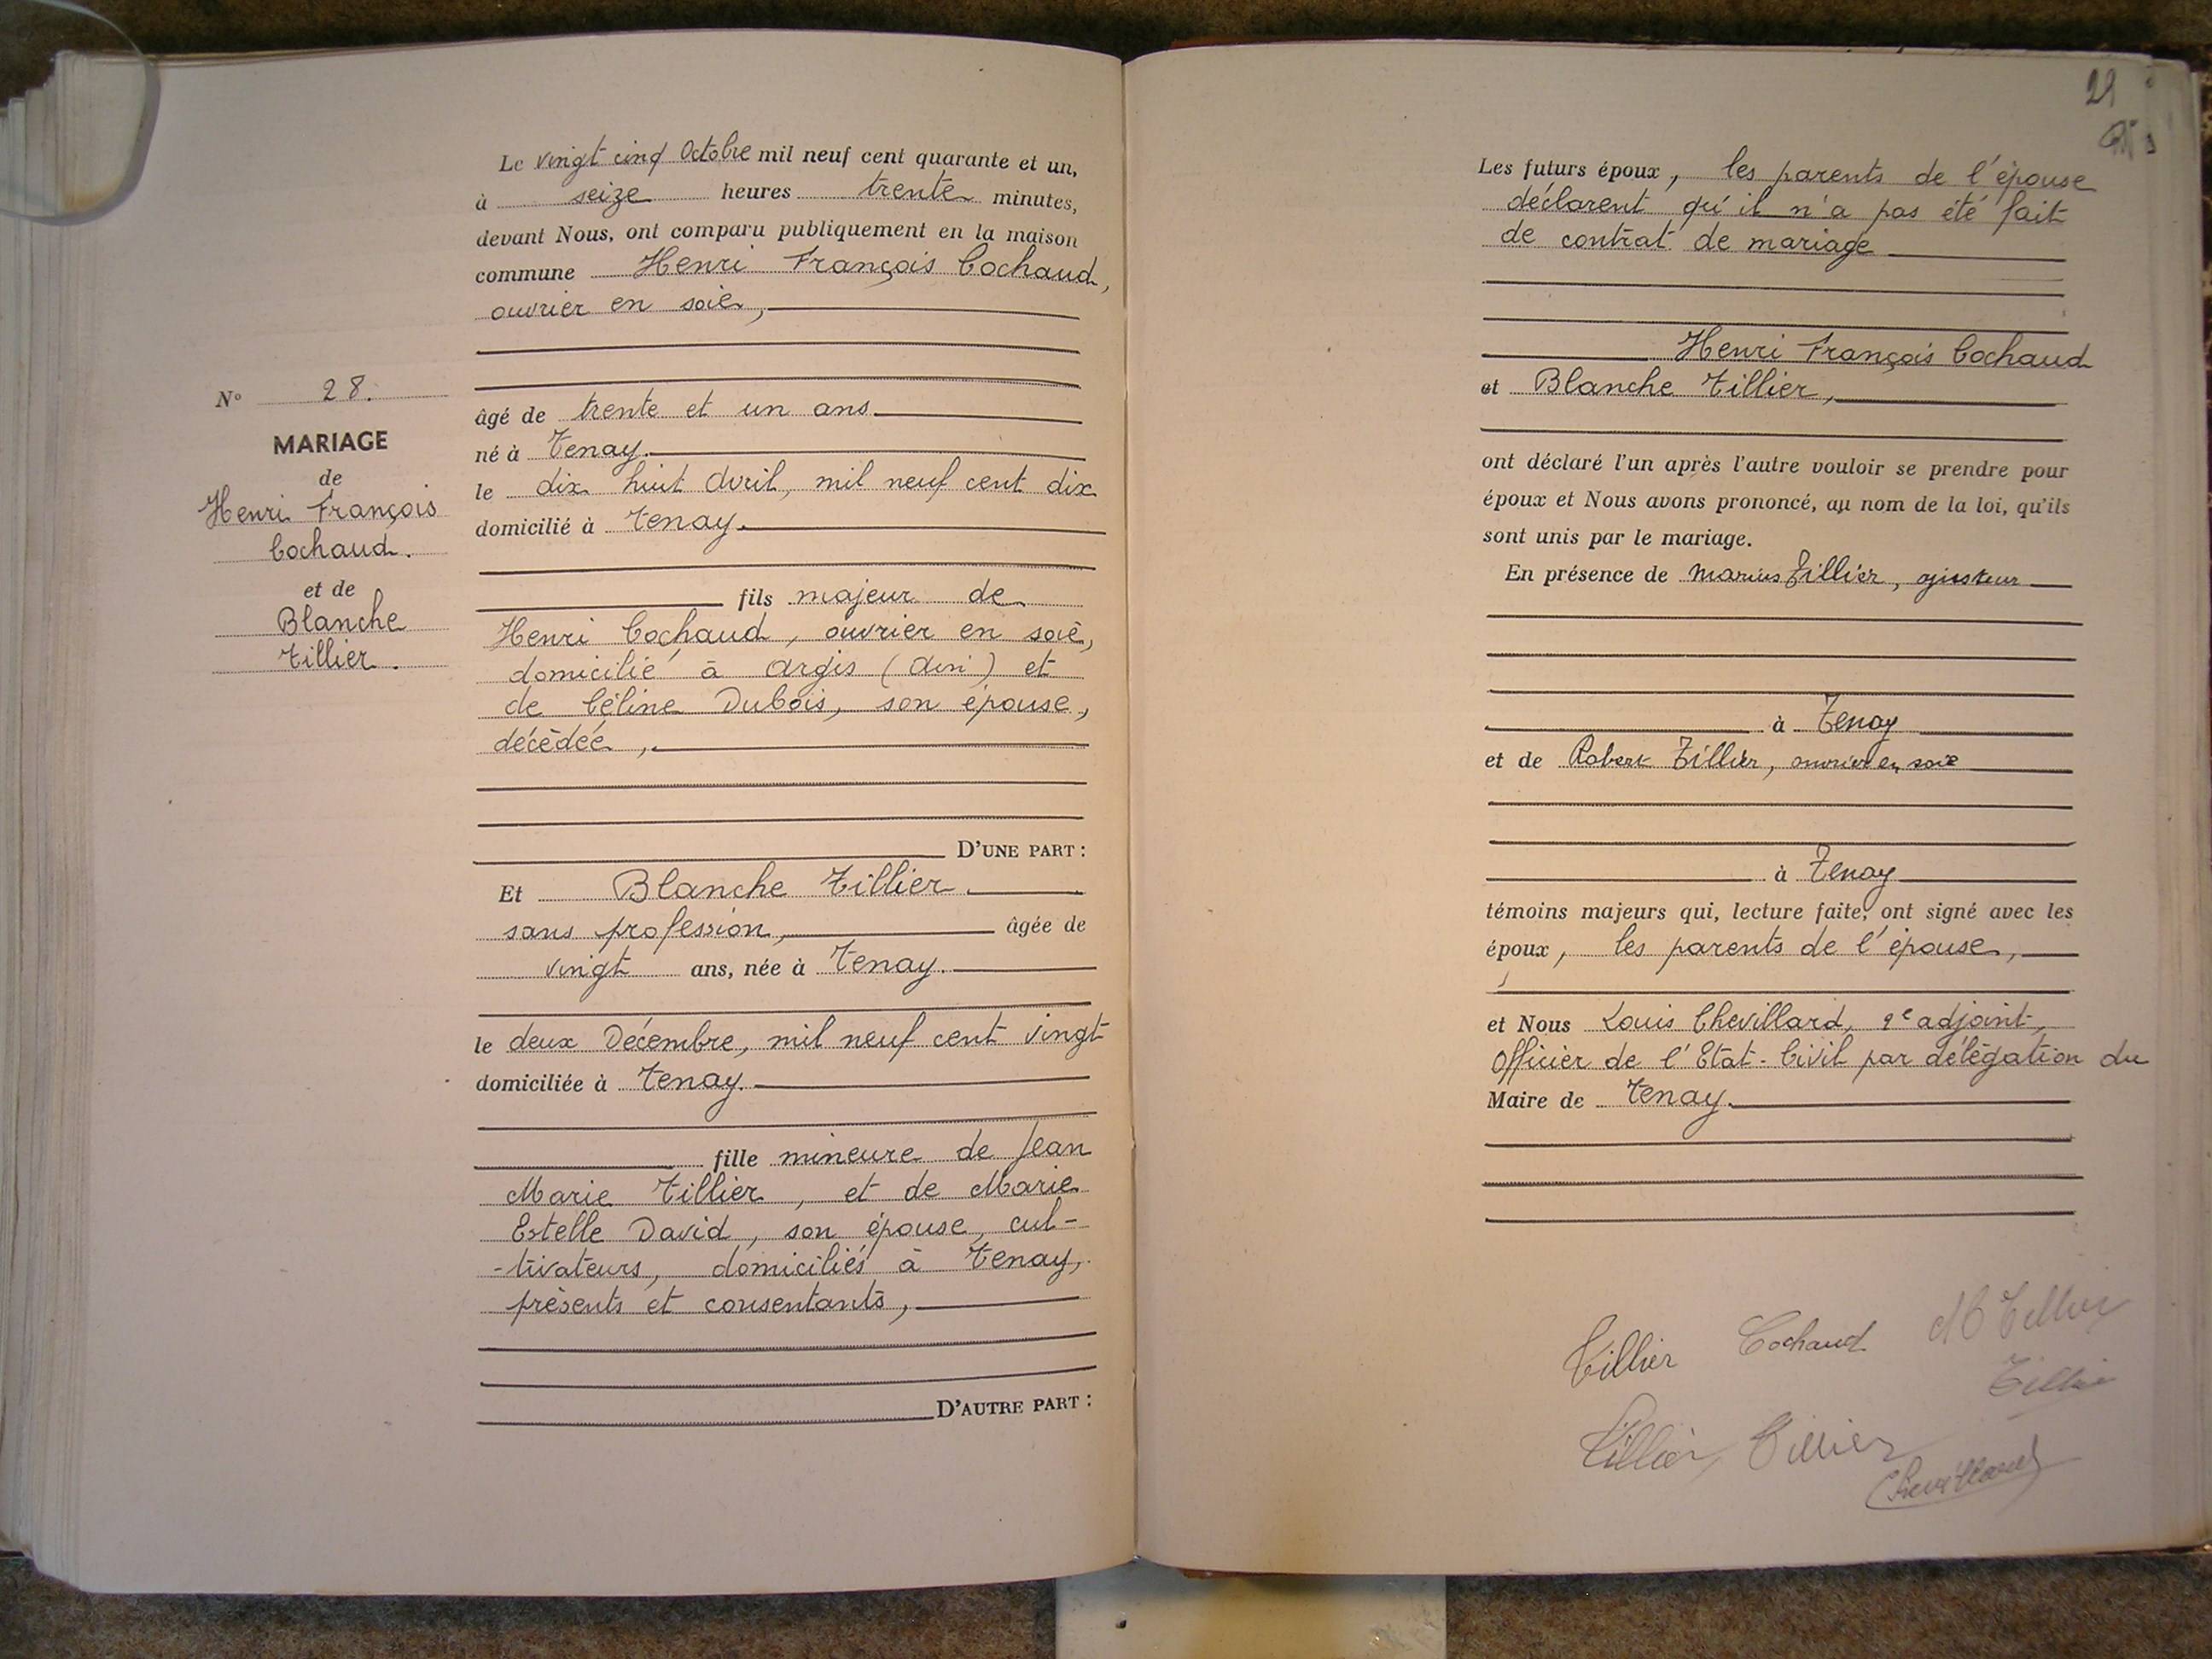 Le vingt cinq Octobre mil neuf cent quarante et un,
à seize heures trente minutes,
devant Nous, ont comparu publiquement en la maison
commune Henri François Cochaud,
ouvrier en soie,
N° 28.
MARIAGE
de
Henri François
Cochaud.
et de
Blanche
Tillier.
âgé de trente et un ans
né à Tenay.
le dix huit Avril, mil neuf cent dix
domicilié à Tenay.
fils majeur de
Henri Cochaud, ouvrier en soie,
domicilié à Argis (Ain) et
de Céline Dubois, son épouse,
décédée,
D'UNE PART :
Et Blanche Tillier.
sans profession, âgée de
vingt ans, née à Tenay.
le deux Décembre, mil neuf cent vingt
domiciliée à Tenay.
fille mineure de Jean
Marie Tillier, et de Marie
Estelle David, son épouse, cul-
-tivateurs, domiciliés à Tenay,
présents et consentants,
D'AUTRE PART :
29
Les futurs époux, les parents de l'épouse
déclarent qu'il n'a pas été fait
de contrat de mariage
Henri François Cochaud
et Blanche Tillier,
ont déclaré l'un après l'autre vouloir se prendre pour
époux et Nous avons prononcé, au nom de la loi, qu'ils
sont unis par le mariage.
En présence de Marius Tillier, ajusteur
à Tenay
et de Robert Tillier, ouvrier en soie
à Tenay
témoins majeurs qui, lecture faite, ont signé avec les
époux, les parents de l'épouse,
et Nous Louis Chevillard, 2e adjoint,
Officier de l'Etat-Civil par délégation du
Maire de Tenay.
Tillier Cochaud M Tillier
Tillier
Tillier Tillier
Chevillard